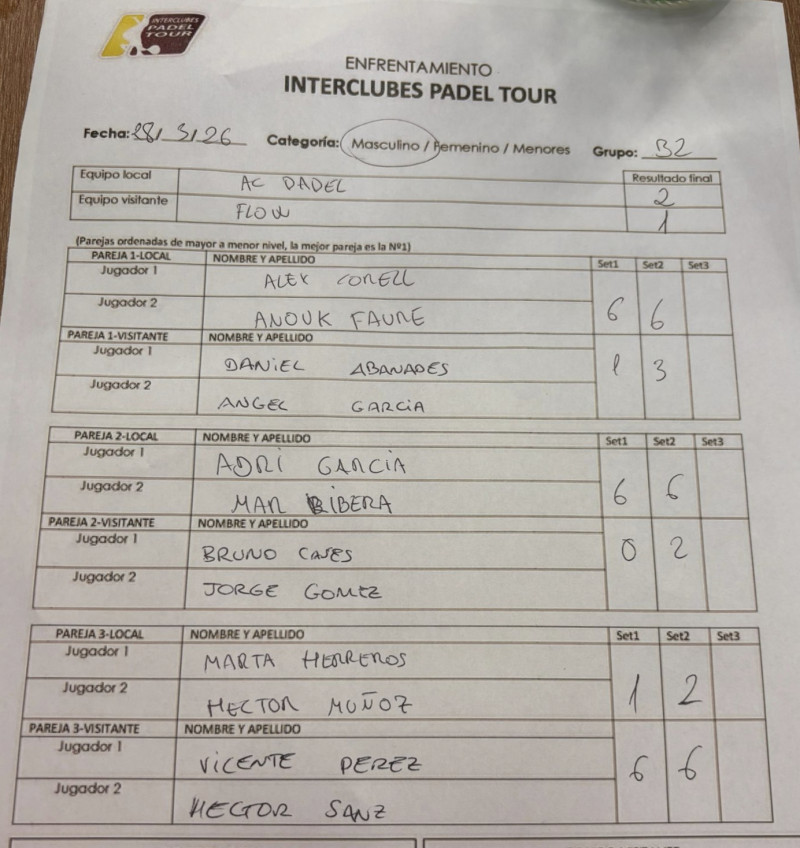 INTERCLUBES
PADEL
TOUR
ENFRENTAMIENTO
INTERCLUBES PADEL TOUR
Fecha: 28/3/26 Categoría: Masculino / Femenino / Menores Grupo: B2
Equipo local AC PADEL Resultado final
2
Equipo visitante FLOW 1
(Parejas ordenadas de mayor a menor nivel, la mejor pareja es la Nº1)
PAREJA 1-LOCAL NOMBRE Y APELLIDO Set1 Set2 Set3
Jugador 1 ALEX CORELL
Jugador 2 ANOUK FAURE 6 6
PAREJA 1-VISITANTE NOMBRE Y APELLIDO
Jugador 1 DANIEL ABANADES 1 3
Jugador 2 ANGEL GARCIA
PAREJA 2-LOCAL NOMBRE Y APELLIDO Set1 Set2 Set3
Jugador 1 ADRI GARCIA
Jugador 2 MAR RIBERA 6 6
PAREJA 2-VISITANTE NOMBRE Y APELLIDO
Jugador 1 BRUNO CASES 0 2
Jugador 2 JORGE GOMEZ
PAREJA 3-LOCAL NOMBRE Y APELLIDO Set1 Set2 Set3
Jugador 1 MARTA HERREROS
Jugador 2 HECTOR MUÑOZ 1 2
PAREJA 3-VISITANTE NOMBRE Y APELLIDO
Jugador 1 VICENTE PEREZ 6 6
Jugador 2 HECTOR SANZ